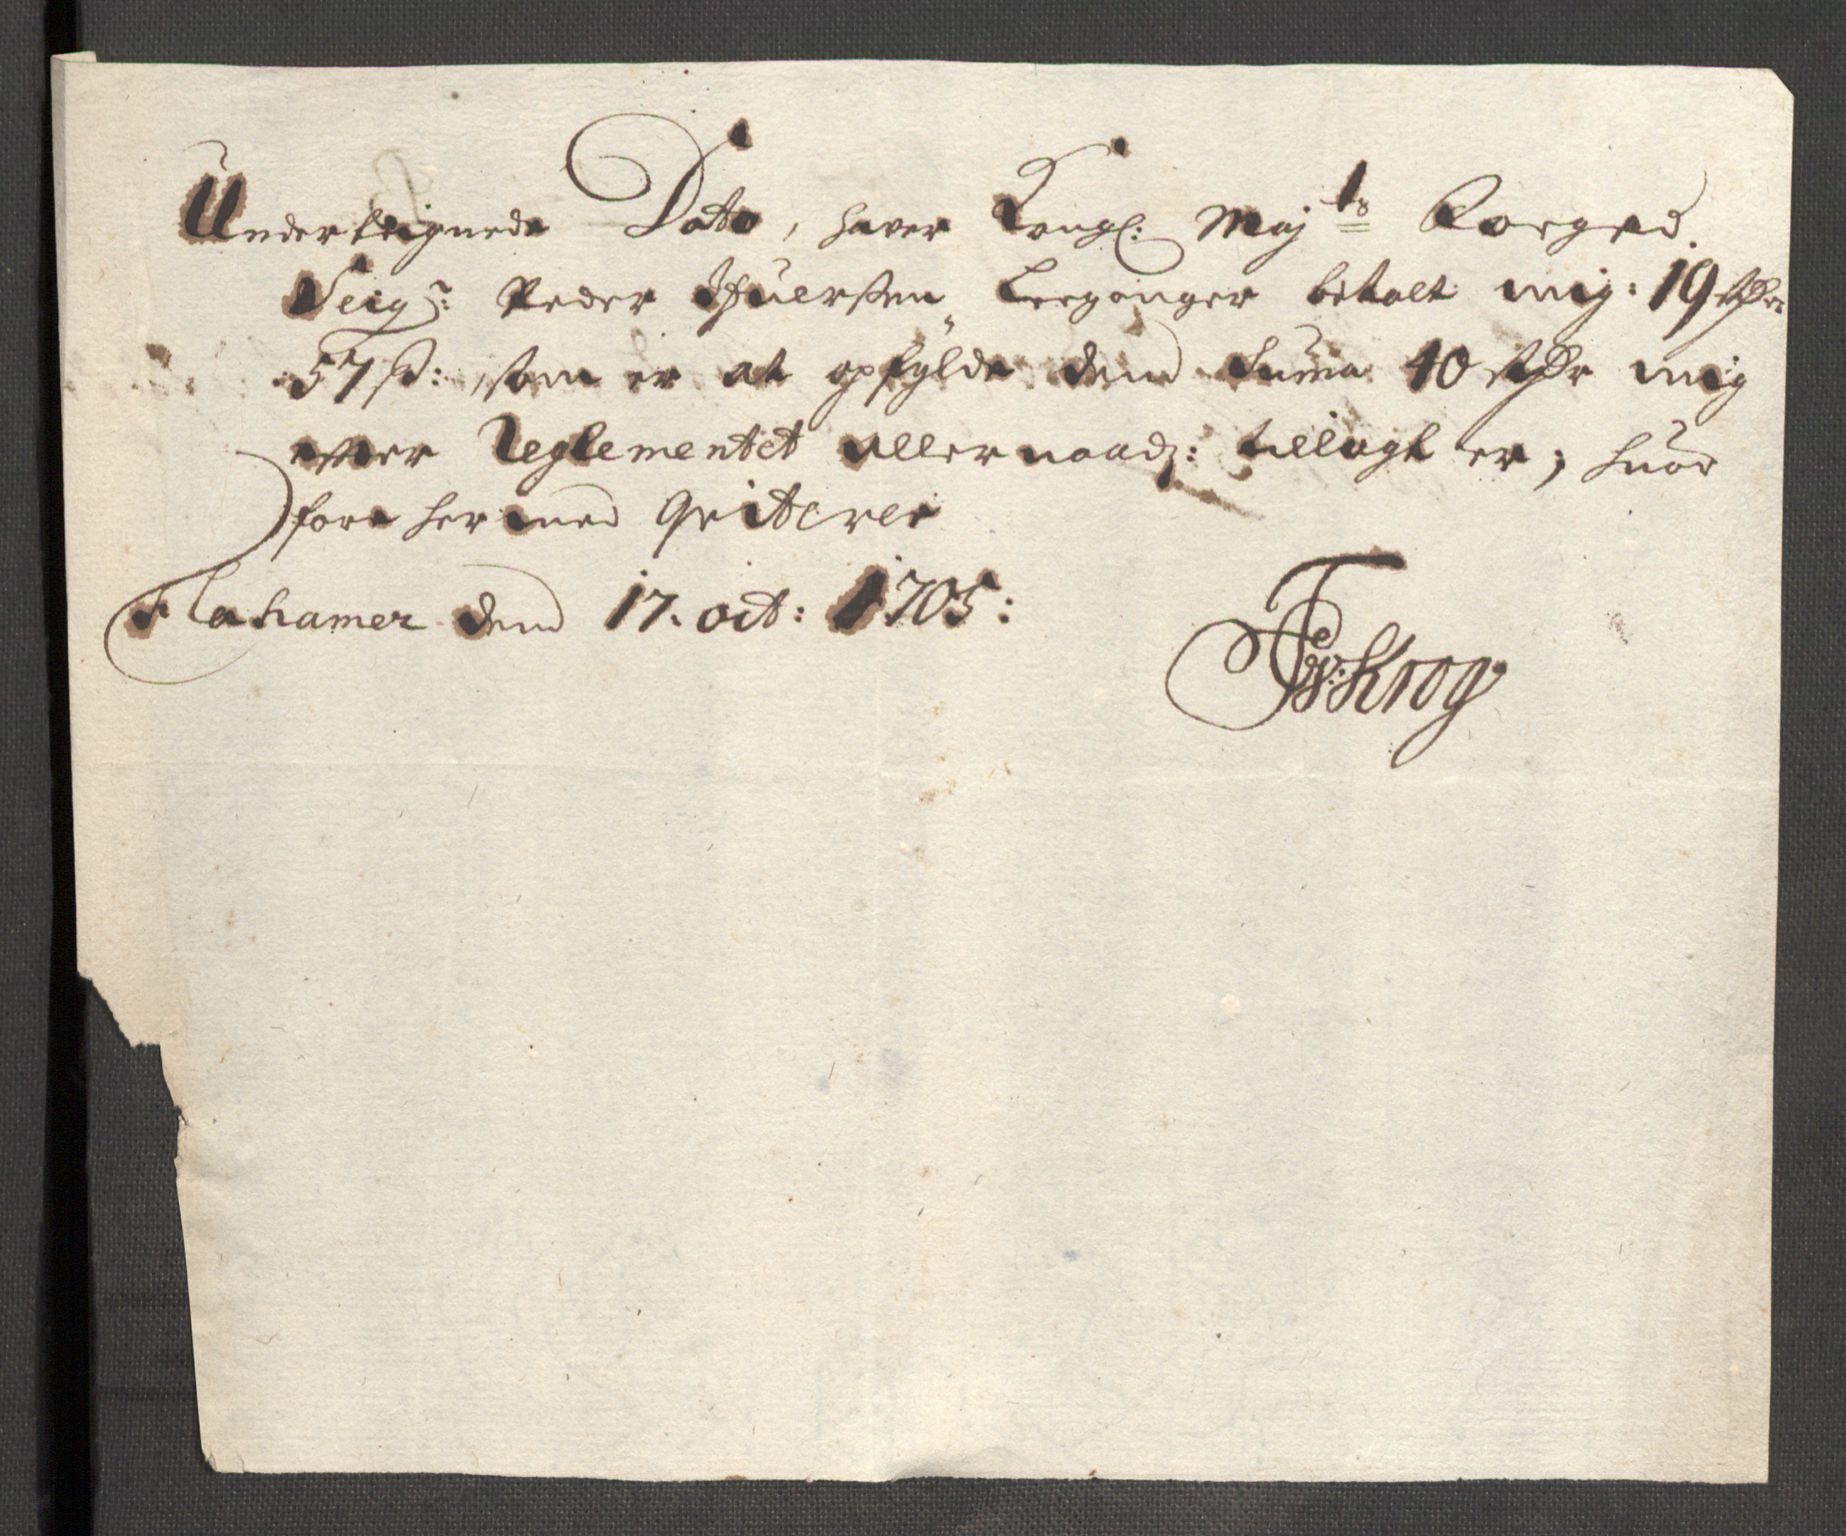 Underteignede Dato, haver Kongl: Maj<sup>ts</sup> Foeged.
Seig<sup>r</sup>: Peder Ifuersen Leeganger betalt mig: 19 rdr
57 s: som er at opfylde dend Suma 40 rdr mig
efter Reglementet allernaad: tillagt er, huor
fore hermed Qviterer
Flahamer dend 17. oct: 1705:
Krog